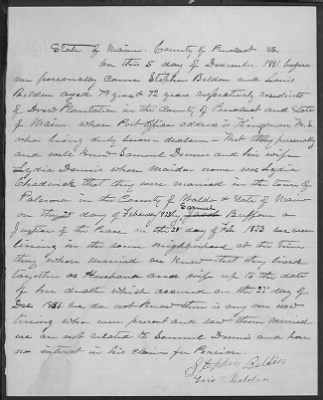 State of Maine. County of Penobscot SS.
On this 5 day of December 1881 before
me personally came Stephen Belden and Lois
Belden aged 79 years & 72 years respectively residents
of Drew Plantation in the County of Penobscot and State
of Maine whose Post Office address is Kingman M.E.
who being duly sworn declare - that they personally
and well knew Samuel Dennis and his wife
Lydia Dennis whose maiden name was Lydia
Chadwick that they were married in the town of
Palermo in the County of Waldo & State of Maine
on the day of February by Samuel Buffum a
Justice of the Peace on the day of Feb 1833 we were
living in the same neighborhood at the time
they where married we know that they lived
together as Husband and wife up to the date
of her death which occured on the 22 day of
Dec we do not know there is any one now
living who were present and saw them married
we are not related to Samuel Dennis and have
no interest in his claim for Pension.
Stephen Belden
Lois Belden